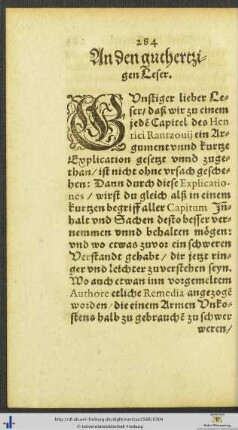 284
An den guthertzi-
gen Leser.
GUnstiger lieber Le-
ser/daß wir zu einem
jedē Capitel des Hen
rici Rantzouij ein Ar-
gument vnnd kurtze
Explication gesetzt vnnd zuge-
than/ist nicht ohne vrsach gesche-
hen: Dann durch diese Explicatio-
nes/wirst du gleich alß in einem
kurtzen begriff aller Capitum In-
halt vnd Sachen desto besser ver-
nemmen vnnd behalten mögen:
vnd wo etwas zuvor ein schweren
Verstandt gehabt/dir jetzt rin-
ger vnd leichter zuverstehen seyn.
Wo auch etwan inn vorgemeltem
Authore etliche Remedia angezogē
worden/die einem Armen Unko-
stens halb zu gebrauchē zu schwer
weren/
© Universitätsbibliothek Freiburg